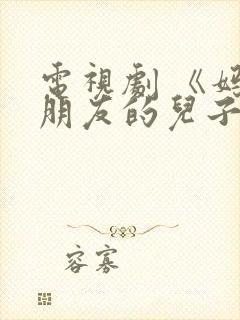 電視劇《媽
朋友的兒子
容寡